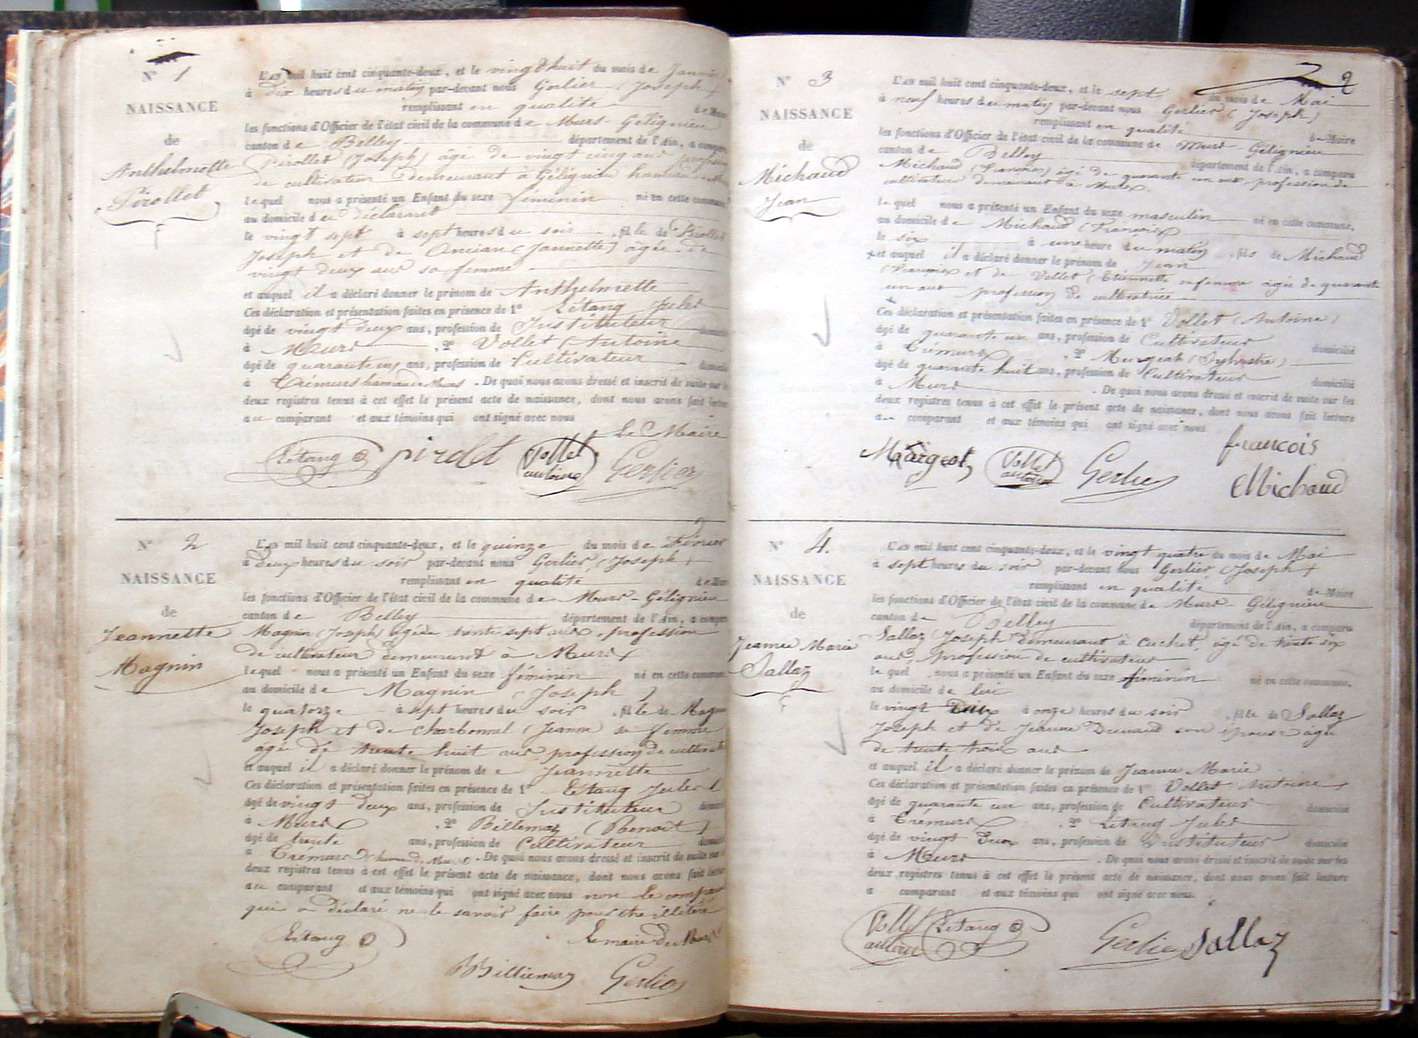 N° 1
NAISSANCE
de
Anthelmette
Pirollet
L'AN mil huit cent cinquante-deux, et le vingt huit du mois de Janvier
à dix heures du matin par-devant nous Gerlier (Joseph)
remplissant en qualité de Maire
les fonctions d'Officier de l'état civil de la commune de Murs-Gélignieu
canton de Belley département de l'Ain, a comparu
Pirollet (Joseph) âgé de vingt cinq ans profession
de cultivateur demeurant à Gélignieu
Lequel nous a présenté un Enfant du sexe féminin né en cette commune
au domicile du déclarant
le vingt sept à sept heures du soir, fille de Pirollet
Joseph et de Ancian (Jannette) agée de
vingt deux ans sa femme
et auquel il a déclaré donner le prénom de Anthelmette
Ces déclaration et présentation faites en présence de 1° Létang Jules
âgé de vingt deux ans, profession de Instituteur domicilié
à Murs, 2° Vollet (Antoine)
âgé de quarante un ans, profession de Cultivateur domicilié
à Crémurs hameau de Murs. De quoi nous avons dressé et inscrit de suite sur les
deux registres tenus à cet effet le présent acte de naissance, dont nous avons fait lecture
au comparant et aux témoins qui ont signé avec nous
Le Maire
Létang pirolet Vollet antoine Gerlier
N° 2
NAISSANCE
de
Jeannette
Magnin
L'AN mil huit cent cinquante-deux, et le quinze du mois de Février
à deux heures du soir par-devant nous Gerlier (Joseph)
remplissant en qualité de Maire
les fonctions d'Officier de l'état civil de la commune de Murs-Gélignieu
canton de Belley département de l'Ain, a comparu
Magnin (Joseph) agé de trente sept ans profession
de cultivateur demeurant à Murs
Lequel nous a présenté un Enfant du sexe féminin né en cette commune
au domicile de Magnin (Joseph)
le quatorze à sept heures du soir, fille de Magnin
Joseph et de Charbonnel (Jeanne) sa femme
agé de trente huit ans profession de cultivatrice
et auquel il a déclaré donner le prénom de Jeannette
Ces déclaration et présentation faites en présence de 1° Létang Jules
âgé de vingt deux ans, profession de Instituteur domicilié
à Murs, 2° Billemaz (Benoit)
âgé de trente ans, profession de Cultivateur domicilié
à Crémurs hameau de Murs. De quoi nous avons dressé et inscrit de suite sur les
deux registres tenus à cet effet le présent acte de naissance, dont nous avons fait lecture
au comparant et aux témoins qui ont signé avec nous non le comparant
qui a déclaré ne le savoir faire pour être illitéré
Létang Le maire de Murs
Billiemaz Gerlier
2
N° 3
NAISSANCE
de
Michaud
Jean
L'AN mil huit cent cinquante-deux, et le sept du mois de Mai
à neuf heures du matin par-devant nous Gerlier (Joseph)
remplissant en qualité de Maire
les fonctions d'Officier de l'état civil de la commune de Murs-Gélignieu
canton de Belley département de l'Ain, a comparu
Michaud (François) agé de quarante un ans profession de
cultivateur demeurant à
Lequel nous a présenté un Enfant du sexe masculin né en cette commune,
au domicile de Michaud (François)
le six à une heure du matin, fils de Michaud
et auquel il a déclaré donner le prénom de Jean
(François) et de Vollet (Etiennette) sa femme agée de quarante
un ans profession de cultivatrice
Ces déclaration et présentation faites en présence de 1° Vollet (Antoine)
âgé de quarante un ans, profession de Cultivateur domicilié
à Crémurs, 2° Murgeat (Sylvestre)
âgé de quarante huit ans, profession de Cultivateur domicilié
à Murs. De quoi nous avons dressé et inscrit de suite sur les
deux registres tenus à cet effet le présent acte de naissance, dont nous avons fait lecture
au comparant et aux témoins qui ont signé avec nous
Vollet antoine Gerlier françois
Michaud
N° 4.
NAISSANCE
de
Jeanne Marie
Sallaz
L'AN mil huit cent cinquante-deux, et le vingt quatre du mois de Mai
à sept heures du soir par-devant nous Gerlier (Joseph)
remplissant en qualité de Maire
les fonctions d'Officier de l'état civil de la commune de Murs Gélignieu
canton de Belley département de l'Ain, a comparu
Sallaz Joseph demeurant à Cuchet, agé de trente six
ans, profession de cultivateur
Lequel nous a présenté un Enfant du sexe féminin né en cette commune,
au domicile de lui
le vingt deux à onze heures du soir, fille de Sallaz
Joseph et de Jeanne Durand son épouse agée
de trente trois ans
et auquel il a déclaré donner le prénom de Jeanne Marie
Ces déclaration et présentation faites en présence de 1° Vollet Antoine
âgé de quarante un ans, profession de Cultivateur domicilié
à Crémurs, 2° Létang Jules
âgé de vingt deux ans, profession de Instituteur domicilié
à Murs. De quoi nous avons dressé et inscrit de suite sur les
deux registres tenus à cet effet le présent acte de naissance, dont nous avons fait lecture
a comparant et aux témoins qui ont signé avec nous.
Vollet antoine Létang Gerlier Sallaz